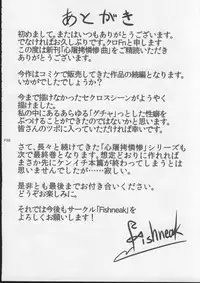 あとがき
初めまして。またはいつもありがとうございます。
でなければお久しぶりです。クロFnと申します
この度は新刊「心屠拷憐惨 曲」をご精読いただき
ありがとうございます。
今作はコミケで販売してきた作品の続編となります。
いかがでしたでしょうか?
今まで描けなかったセクロスシーンがようやく
描けました。
私の中にあるあらゆる「グチャ」っとした性癖を
ぶつけることができたのではないかと思います。
皆さんのツボに入っていただければ幸いです。
さて、長々と続けてきた「心屠拷憐惨」シリーズも
次で最終巻となります。想定どおりに作れれば
まさか先にケンイチ本篇が終わってしまうとは
思いませんでしたが……寂しい。
是非とも最後までお付き合いください。
どうぞお楽しみに。
それでは今後もサークル「Fishneak」を
よろしくお願いします!
Fishneak